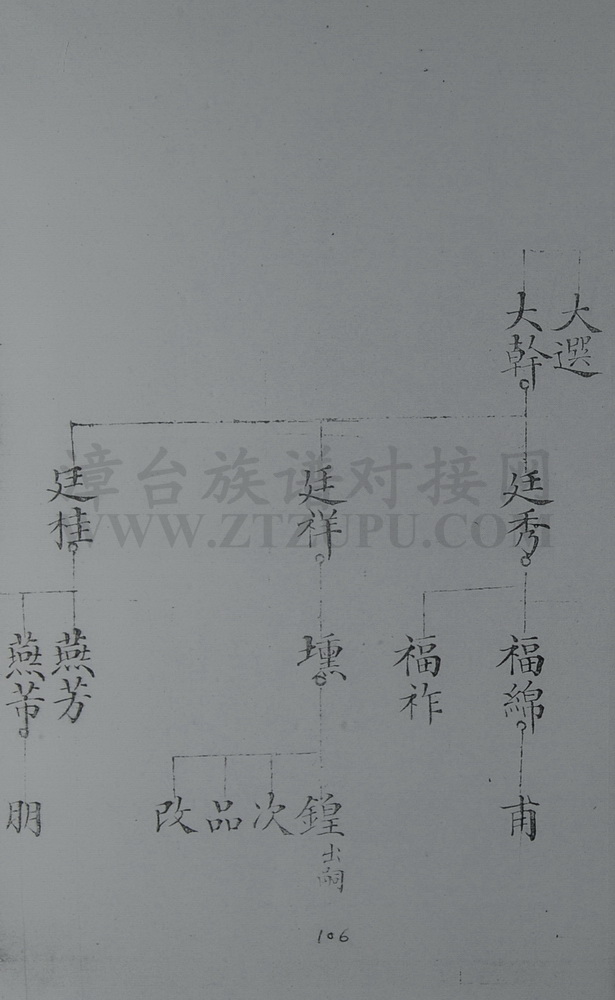 大選
大幹
廷秀
廷祥
廷桂
漳台族谱对接网
WWW.ZTZUPU.COM
福綿
福祚
壎
燕芳
燕芾
甫
鍠 出嗣
次
品
改
朋
106